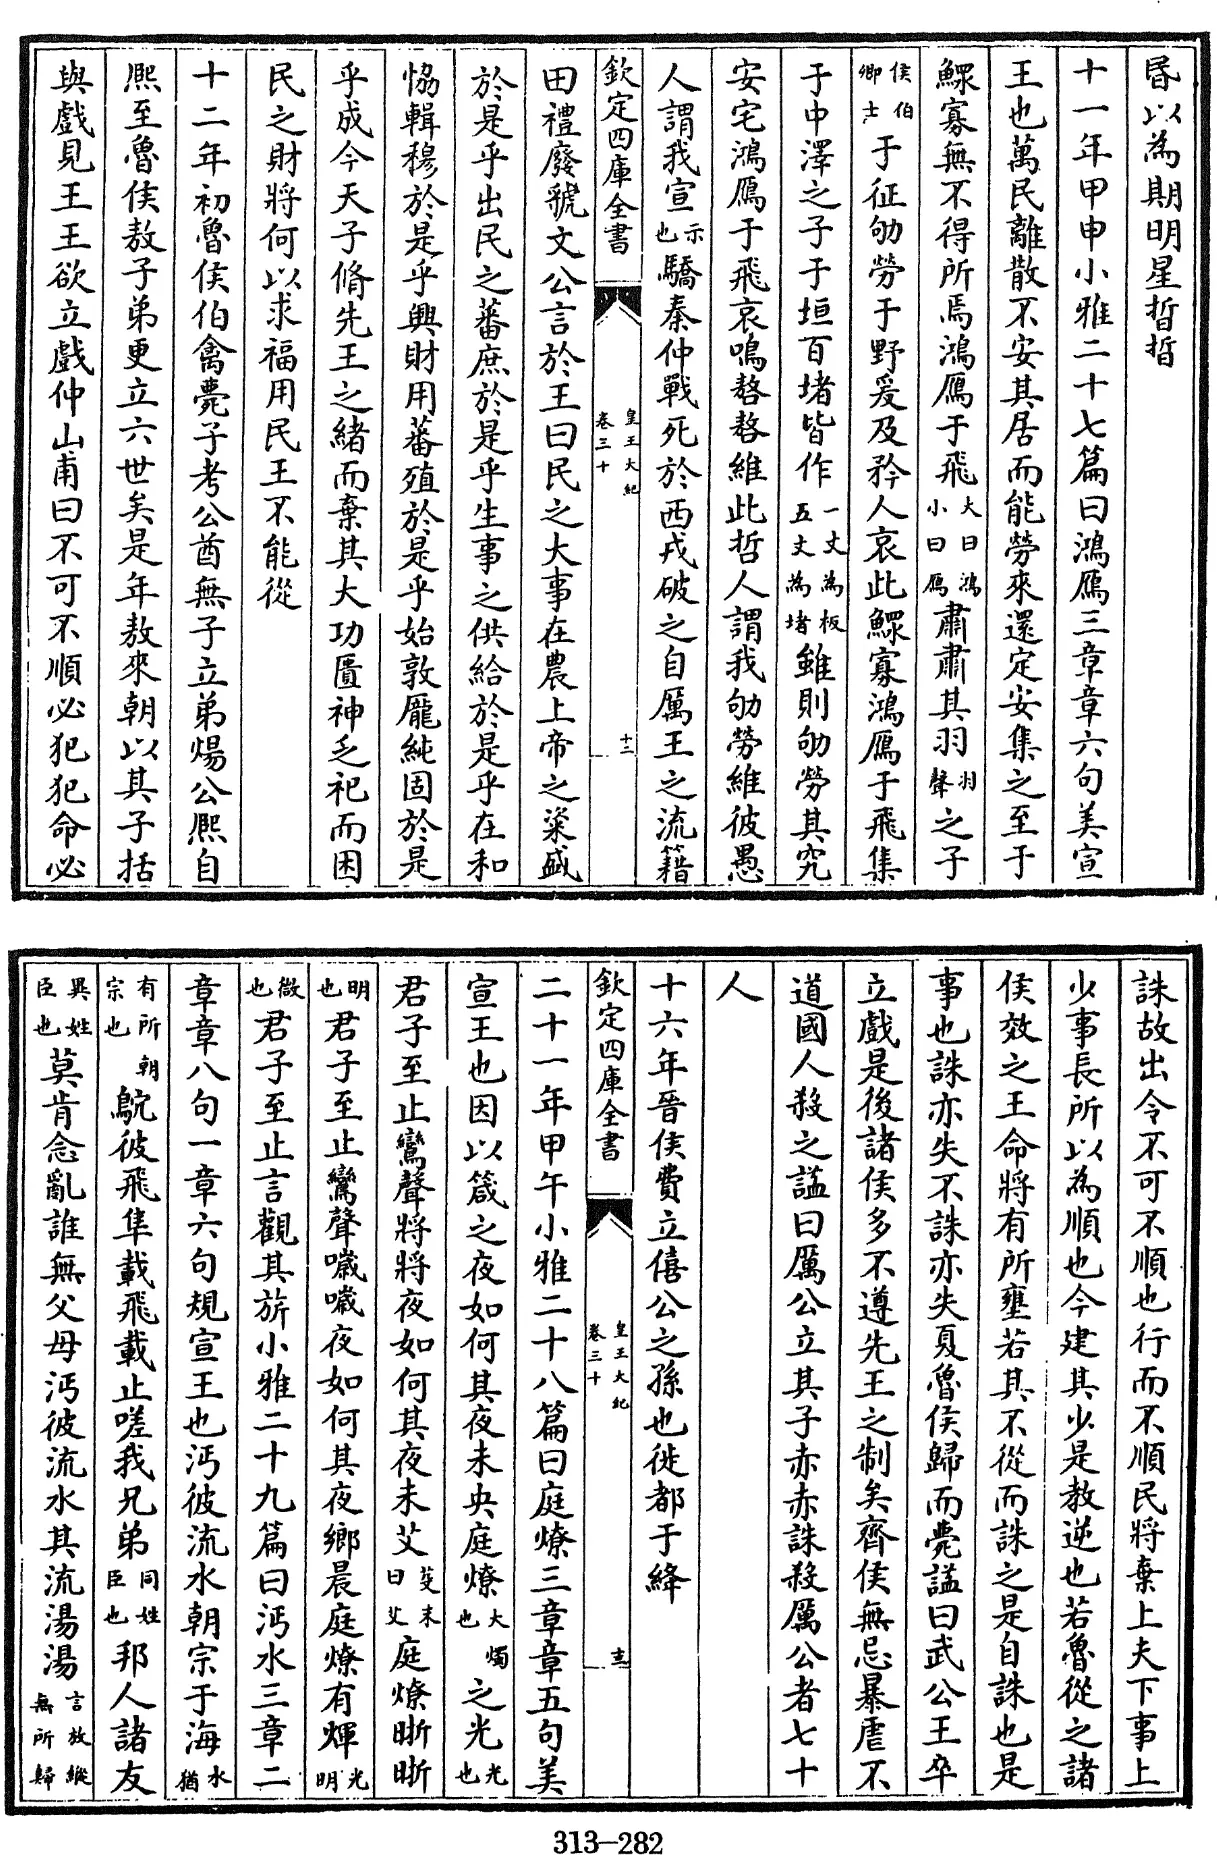 昏以為期明星晢晢
十一年甲申小雅二十七篇曰鴻鴈三章章六句美宣
王也萬民離散不安其居而能勞來還定安集之至于
鰥寡無不得所焉鴻鴈于飛大曰鴻小曰鴈肅肅其羽羽聲之子
侯伯卿士于征劬勞于野爰及矜人哀此鰥寡鴻鴈于飛集
于中澤之子于垣百堵皆作一丈為板五丈為堵雖則劬勞其究
安宅鴻鴈于飛哀鳴嗸嗸維此哲人謂我劬勞維彼愚
人謂我宣示也驕秦仲戰死於西戎破之自厲王之流籍
欽定四庫全書 皇王大紀 卷三十 十二
田禮廢虢文公言於王曰民之大事在農上帝之粢盛
於是乎出民之蕃庶於是乎生事之供給於是乎在和
恊輯穆於是乎興財用蕃殖於是乎始敦厖純固於是
乎成今天子脩先王之緒而棄其大功匱神乏祀而困
民之財將何以求福用民王不能從
十二年初魯侯伯禽薨子考公酋無子立弟煬公熈自
熈至魯侯敖子弟更立六世矣是年敖來朝以其子括
與戲見王王欲立戲仲山甫曰不可不順必犯犯命必
誅故出令不可不順也行而不順民將棄上夫下事上
少事長所以為順也今建其少是教逆也若魯從之諸
侯效之王命將有所壅若其不從而誅之是自誅也是
事也誅亦失不誅亦失夏魯侯歸而薨謚曰武公王卒
立戲是後諸侯多不遵先王之制矣齊侯無忌暴虐不
道國人殺之謚曰厲公立其子赤赤誅殺厲公者七十
人
十六年晉侯費立僖公之孫也徙都于絳
欽定四庫全書 皇王大紀 卷三十 十三
二十一年甲午小雅二十八篇曰庭燎三章章五句美
宣王也因以箴之夜如何其夜未央庭燎大燭也之光光也
君子至止鸞聲將將夜如何其夜未艾芟末曰艾庭燎晣晣
明也君子至止鸞聲噦噦夜如何其夜鄉晨庭燎有煇光明
微也君子至止言觀其旂小雅二十九篇曰沔水三章二
章章八句一章六句規宣王也沔彼流水朝宗于海水猶
有所朝宗也鴥彼飛隼載飛載止嗟我兄弟同姓臣也邦人諸友
異姓臣也莫肯念亂誰無父母沔彼流水其流湯湯言放縱無所歸
313-282